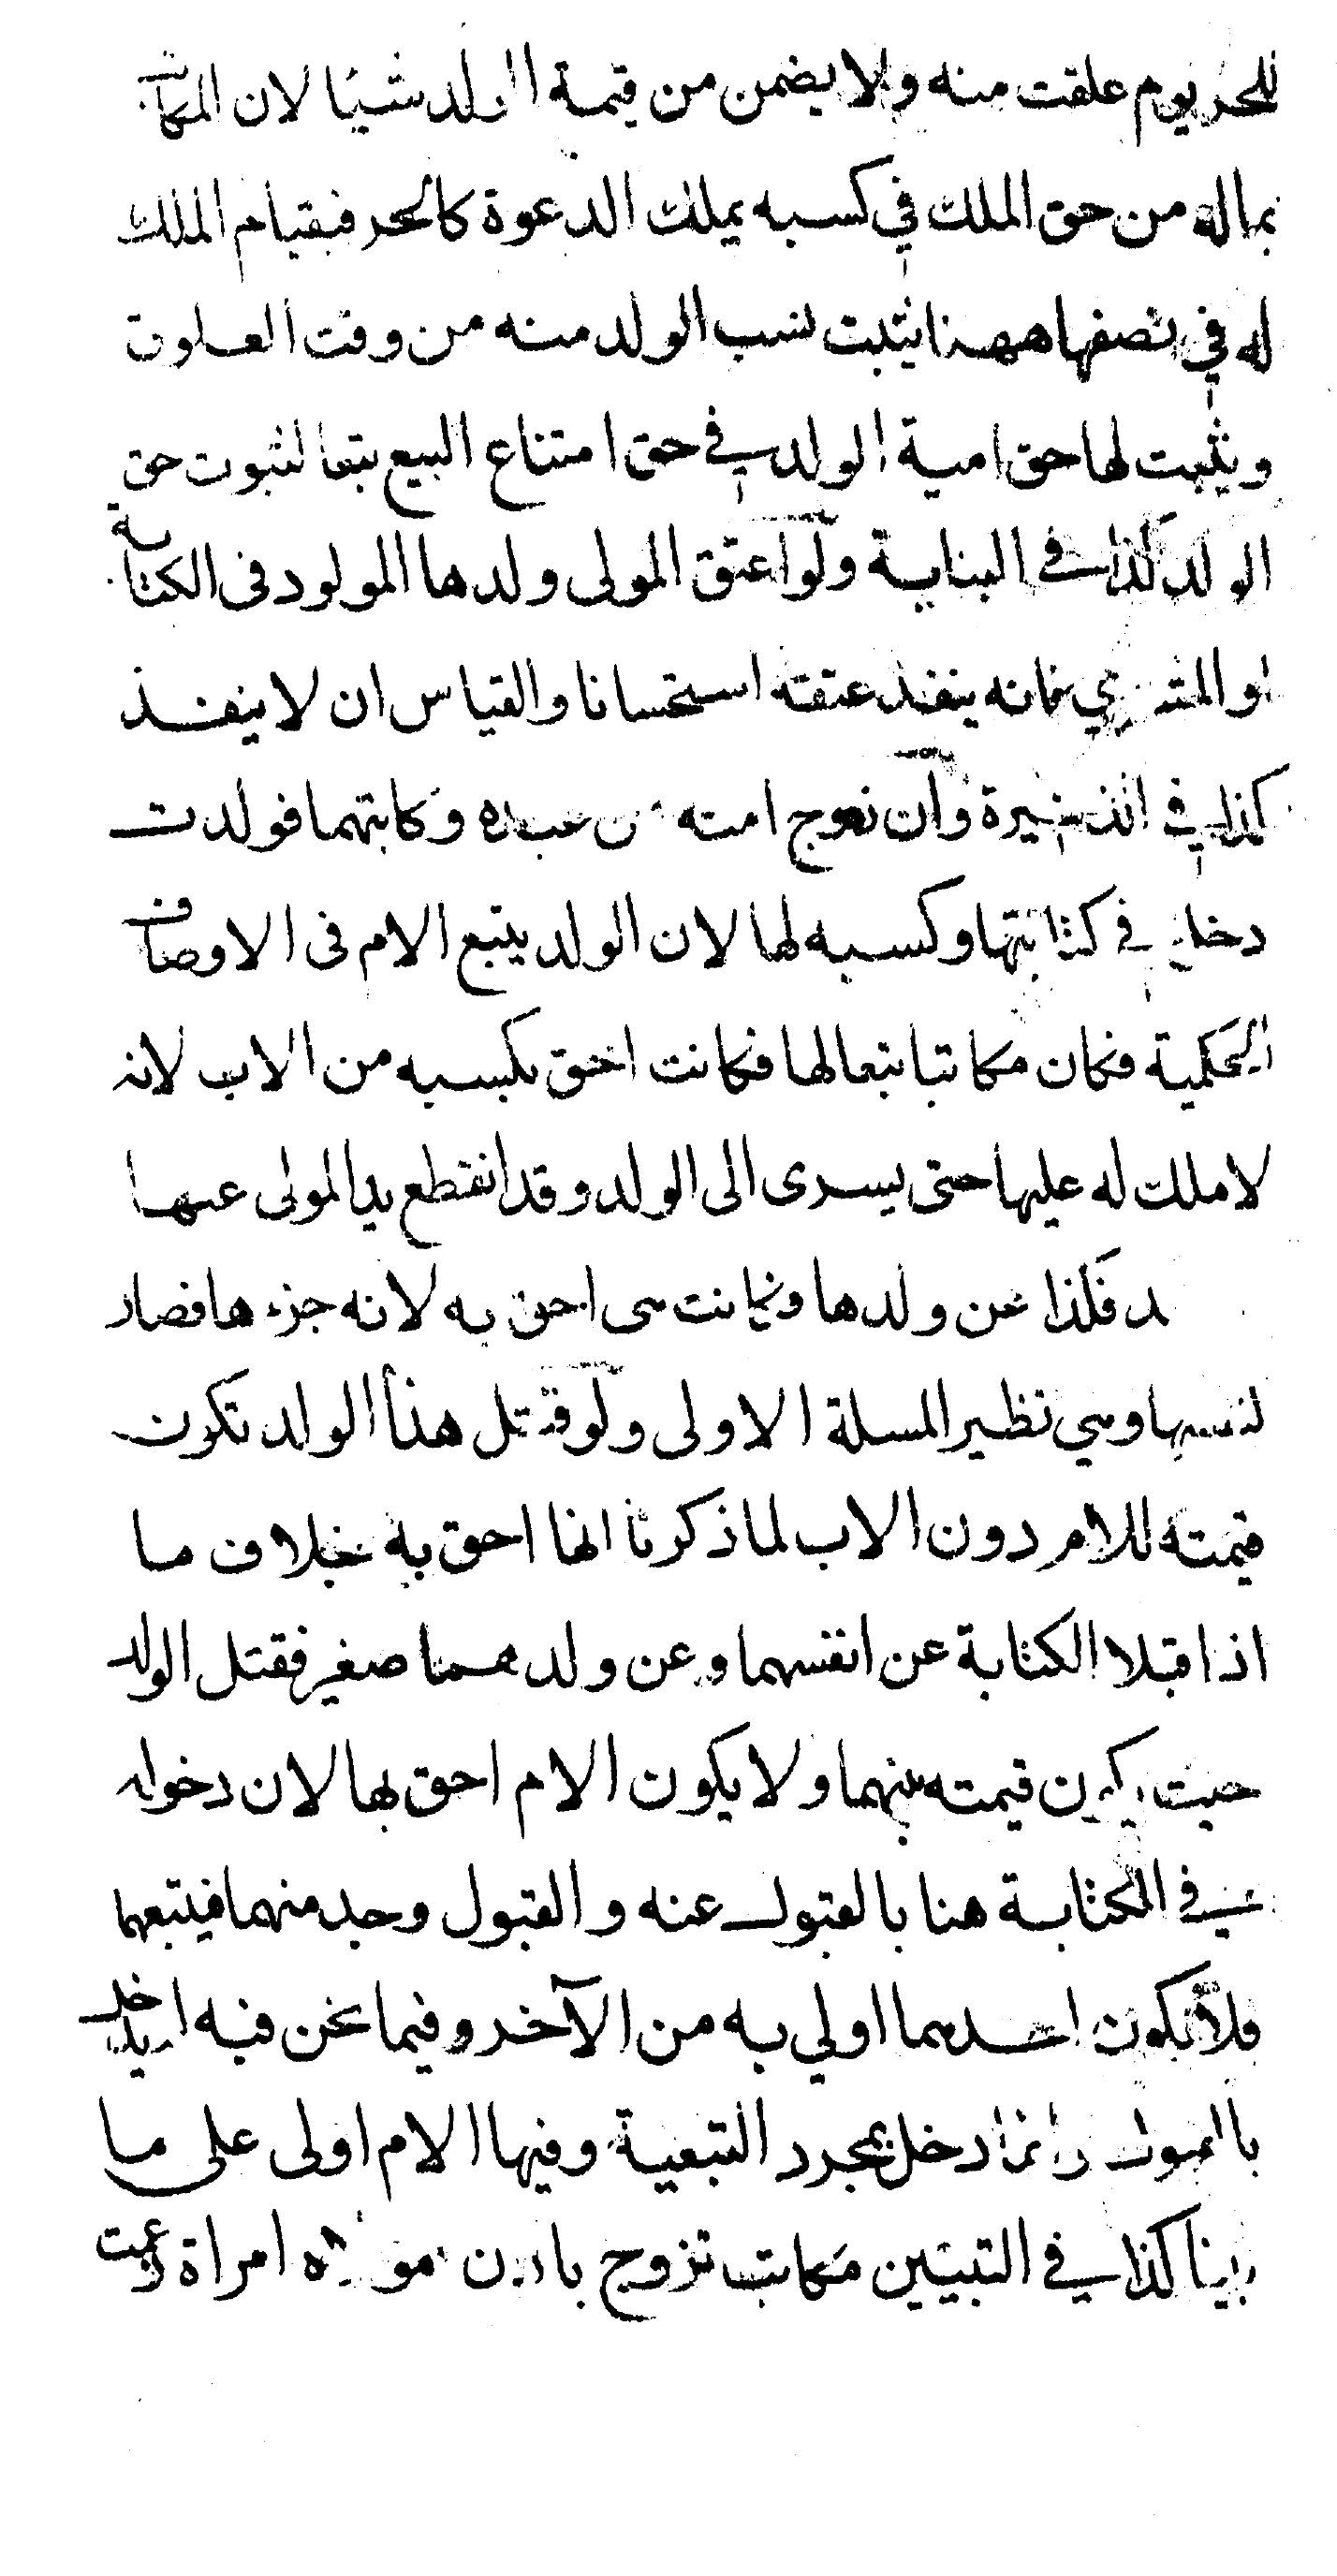 للحر يوم علقت منه ولا يضمن من قيمة الولد شيئا لان المكاتب
بماله من حق الملك في كسبه يملك الدعوة كالحر فبقيام الملك
له في نصفها ههنا يثبت نسب الولد منه من وقت العلوق
ويثبت لها حق امية الولد في حق امتناع البيع تبعا لثبوت حق
الولد كذا في البناية ولو اعتق المولى ولدها المولود في الكتابة
او المشتري فانه ينفذ عتقه استحسانا والقياس ان لا ينفذ
كذا في الذخيرة وان زوج امته من عبده وكاتبهما فولدت
دخل في كتابتها وكسبه لها لان الولد يتبع الام في الاوصاف
الحكمية فكان مكاتبا تبعا لها فكانت احق بكسبه من الاب لانه
لا ملك له عليها حتى يسرى الى الولد وقد انقطع يد المولى عنها
فكذا عن ولدها وكانت هى احق به لانه جزءها فصار
لنفسها وهي نظير المسلة الاولى ولو قتل هذا الولد تكون
قيمته للام دون الاب لما ذكرنا انها احق به خلاف ما
اذا قبلا الكتابة عن انفسهما وعن ولدهما صغير فقتل الولد
حيث يكون قيمته بينهما ولا يكون الام احق بها لان دخوله
في الكتابة هنا بالقبول عنه والقبول وجد منهما فيتبعهما
فلا يكون احدهما اولي به من الآخر وفيما نحن فيه
بالقبول وانما دخل بمجرد التبعية وفيها الام اولى على ما
بينا كذا في التبيين مكاتب تزوج باذن مولاه امراة زعمت